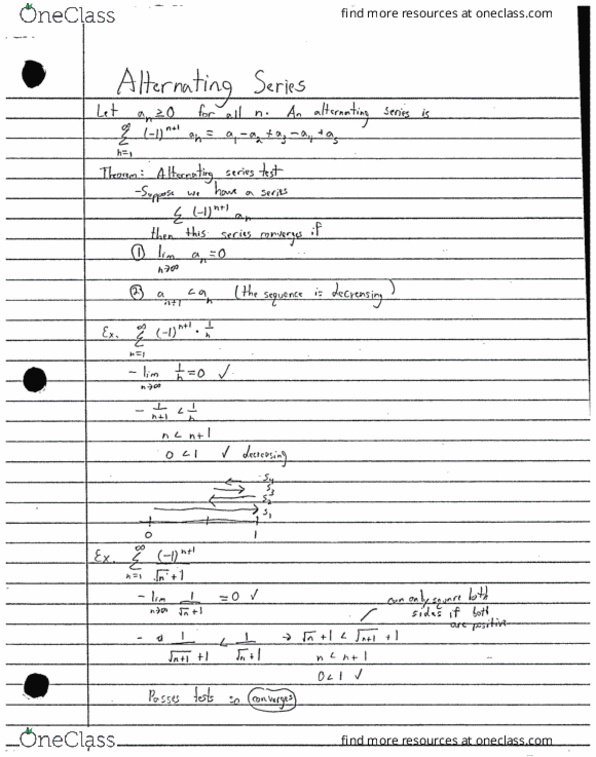 OneClass find more resources at oneclass.com
Alternating Series
Let aₙ ≥ 0 for all n. An alternating series is
∞ Σ n=1 (-1)ⁿ⁺¹ aₙ = a₁ - a₂ + a₃ - a₄ + a₅
Theorem: Alternating series test
- Suppose we have a series
Σ (-1)ⁿ⁺¹ aₙ
then this series converges if
① lim n→∞ aₙ = 0
② aₙ₊₁ < aₙ (the sequence is decreasing)
Ex. ∞ Σ n=1 (-1)ⁿ⁺¹ · 1/n
- lim n→∞ 1/n = 0 ✓
- 1/n+1 < 1/n
n < n+1
0 < 1 ✓ decreasing
S₄
S₃
S₂
S₁
0 1
Ex. ∞ Σ n=1 (-1)ⁿ⁺¹ / √n + 1
- lim n→∞ 1/√n + 1 = 0 ✓
can only square both
sides if both
are positive
- 1/√n+1 + 1 < 1/√n + 1 → √n + 1 < √n+1 + 1
n < n+1
0 < 1 ✓
Passes tests so converges
OneClass find more resources at oneclass.com